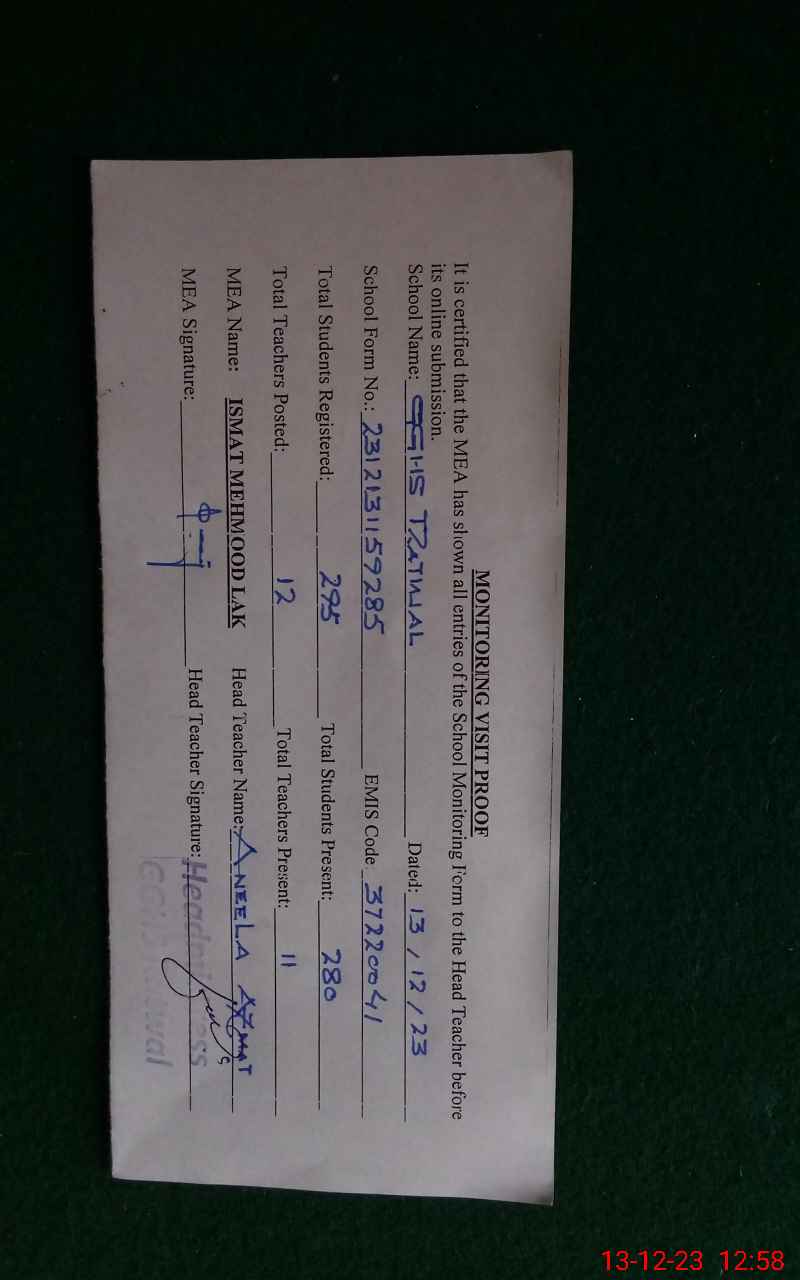 MONITORING VISIT PROOF
It is certified that the MEA has shown all entries of the School Monitoring Form to the Head Teacher before
its online submission.
School Name: GGHS Dated: 13/12/23
School Form No.: 231213159285 EMIS Code 37220041
Total Students Registered: 295 Total Students Present: 280
Total Teachers Posted: 12 Total Teachers Present: 11
MEA Name: ISMAT MEHMOOD LAK Head Teacher Name: ANEELA AZMAT
MEA Signature: Head Teacher Signature: Headmistress
13-12-23 12:58